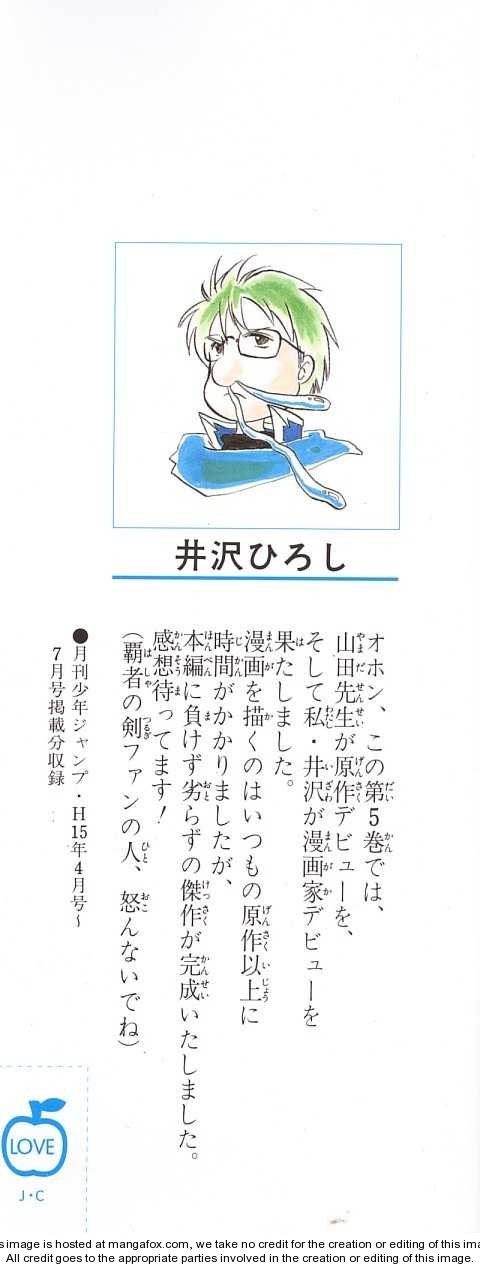 井沢ひろし
オホン、この第5巻では、
山田先生が原作デビューを、
そして私・井沢が漫画家デビューを
果たしました。
漫画を描くのはいつもの原作以上に
時間がかかりましたが、
本編に負けず劣らずの傑作が完成いたしました。
感想待ってます！
（覇者の剣ファンの人、怒んないでね）
●月刊少年ジャンプ・H15年4月号〜
7月号掲載分収録
LOVE
J・C
is image is hosted at mangafox.com, we take no credit for the creation or editing of this ima
All credit goes to the appropriate parties involved in the creation or editing of this image.